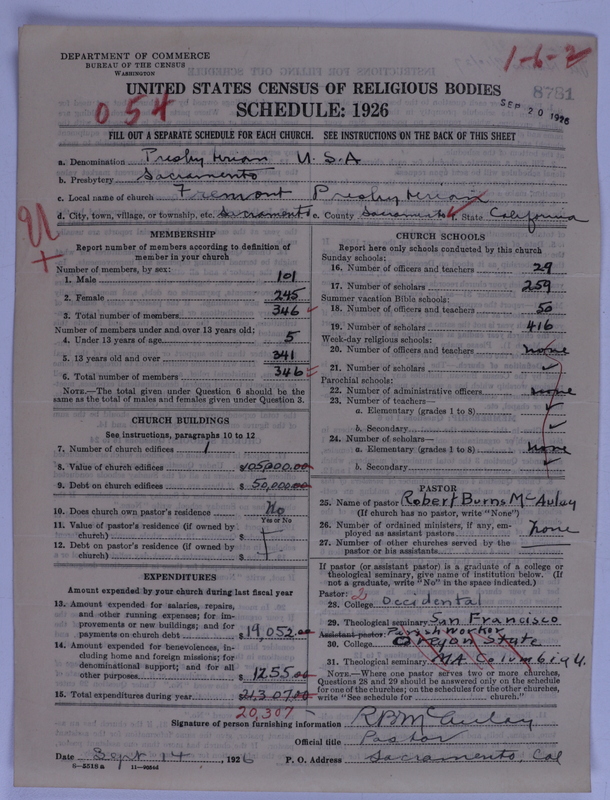 DEPARTMENT OF COMMERCE
BUREAU OF THE CENSUS
WASHINGTON
1-6-2
8781
UNITED STATES CENSUS OF RELIGIOUS BODIES
SEP 20 1926
054
SCHEDULE: 1926
FILL OUT A SEPARATE SCHEDULE FOR EACH CHURCH. SEE INSTRUCTIONS ON THE BACK OF THIS SHEET
a. Denomination Presbyterian U.S.A
b. Presbytery Sacramento
c. Local name of church Fremont Presbyterian
d. City, town, village, or township, etc. Sacramento e. County Sacramento f. State California
U
+
MEMBERSHIP
Report number of members according to definition of
member in your church
Number of members, by sex:
1. Male 101
2. Female 245
3. Total number of members 346
Number of members under and over 13 years old:
4. Under 13 years of age 5
5. 13 years old and over 341
6. Total number of members 346
NOTE.—The total given under Question 6 should be the
same as the total of males and females given under Question 3.
CHURCH BUILDINGS
See instructions, paragraphs 10 to 12
7. Number of church edifices 1
8. Value of church edifices $105,000.00
9. Debt on church edifices $50,000.00
10. Does church own pastor's residence? No
Yes or No
11. Value of pastor's residence (if owned by
church) $
12. Debt on pastor's residence (if owned by
church) $
EXPENDITURES
Amount expended by your church during last fiscal year
13. Amount expended for salaries, repairs,
and other running expenses; for im-
provements or new building; and for
payments on church debt $19,052.00
14. Amount expended for benevolences, in-
cluding home and foreign missions; for
denominational support; and for all
other purposes $1255.00
15. Total expenditures during year $21,307.00
20,307
CHURCH SCHOOLS
Report here only schools conducted by this church
Sunday schools:
16. Number of officers and teachers 29
17. Number of scholars 259
Summer vacation Bible schools:
18. Number of officers and teachers 50
19. Number of scholars 416
Week-day religious schools:
20. Number of officers and teachers none
21. Number of scholars
Parochial schools:
22. Number of administrative officers none
23. Number of teachers—
a. Elementary (grades 1 to 8)
b. Secondary
24. Number of scholars—
a. Elementary (grades 1 to 8) none
b. Secondary
PASTOR
25. Name of pastor Robert Burns McAulay
(If church has no pastor, write "None")
26. Number of ordained ministers, if any, em-
ployed as assistant pastors none
27. Number of other churches served by the
pastor or his assistants
If pastor (or assistant pastor) is a graduate of a college or
theological seminary, give name of institution below. (If
not a graduate, write "No" in the space indicated.)
Pastor: 2
28. College Occidental
29. Theological seminary San Francisco
Assistant pastor: Parish Worker
30. College Oregon State
31. Theological seminary MA Columbia U.
NOTE.—Where one pastor serves two or more churches,
Questions 28 and 29 should be answered only on the schedule
for one of the churches; on the schedules for the other churches,
write "See schedule for church."
Signature of person furnishing information R B McAulay
Official title Pastor
Date Sept 14, 1926 P. O. Address Sacramento, Cal
6-5518 a